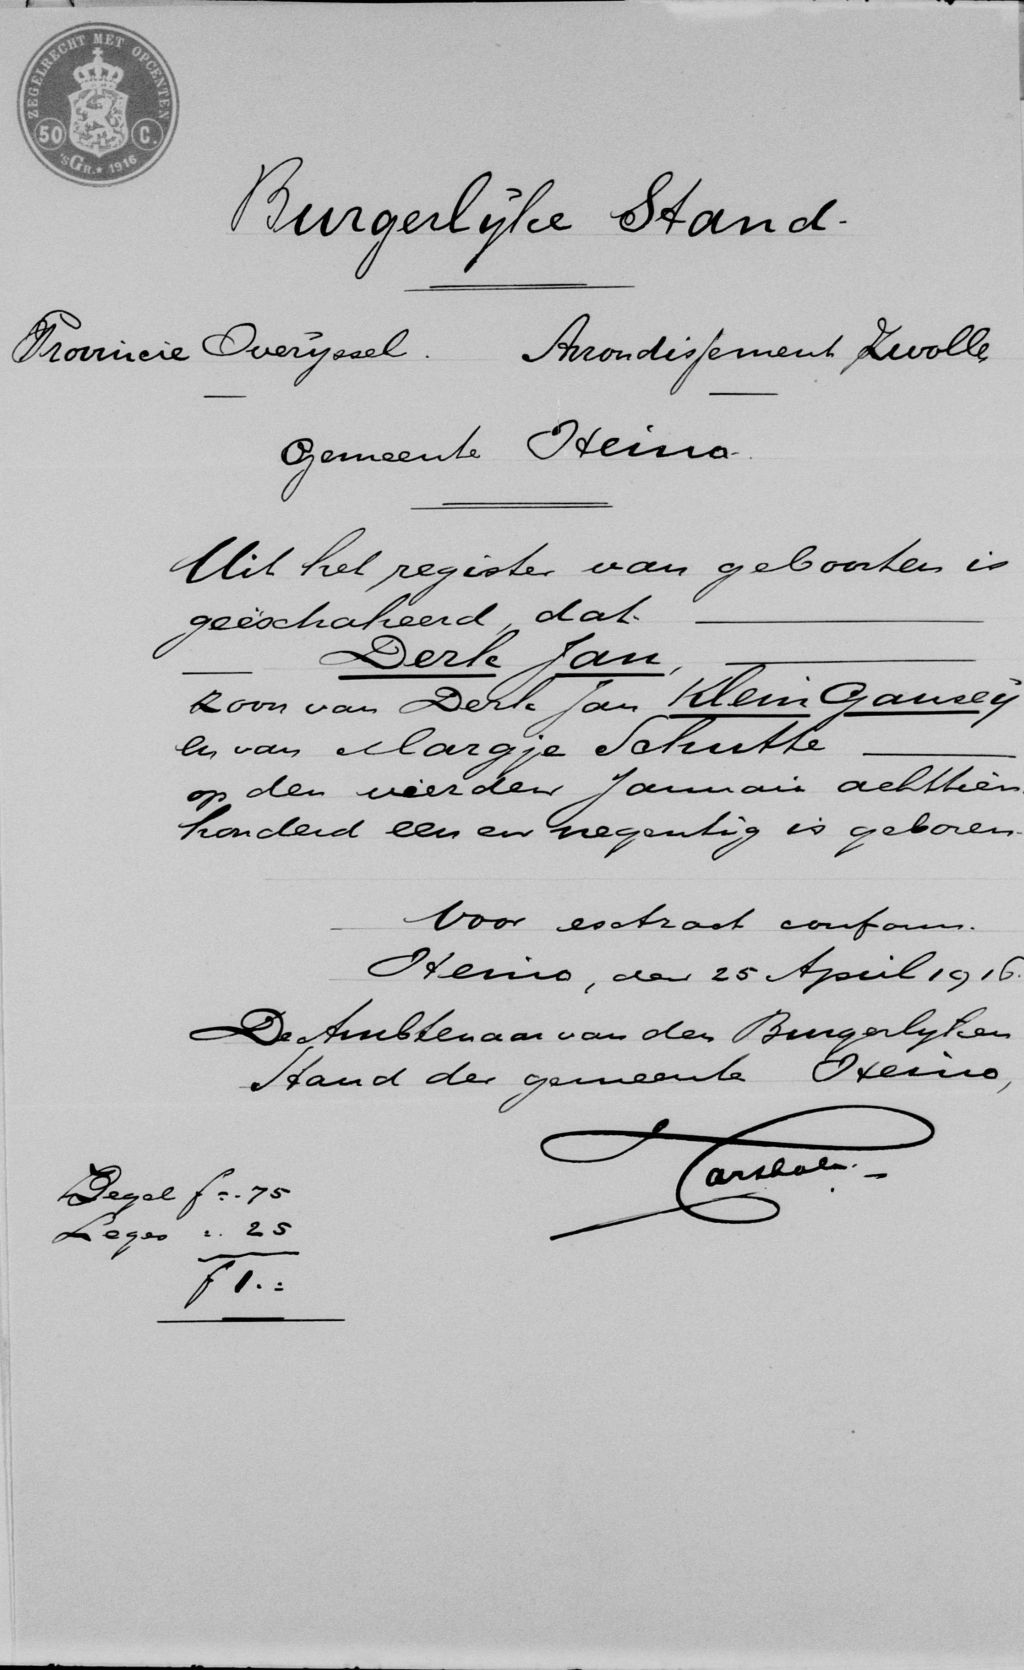 ZEGELRECHT MET OPCENTEN
50 C.
'sGR.* 1916
Burgerlijke Stand.
Provincie Overijssel. Arrondissement Zwolle
Gemeente Heino.
Uit het register van geboorten is
geëxtraheerd, dat
Derk Jan,
zoon van Derk Jan Klein Gansey
en van Margje Schutte
op den vierden Januari achttien
honderd een en negentig is geboren.
Voor extract conform.
Heino, den 25 April 1916.
De Ambtenaar van den Burgerlijken
Stand der gemeente Heino,
Zegel f -.75
Leges ". 25
f 1.=